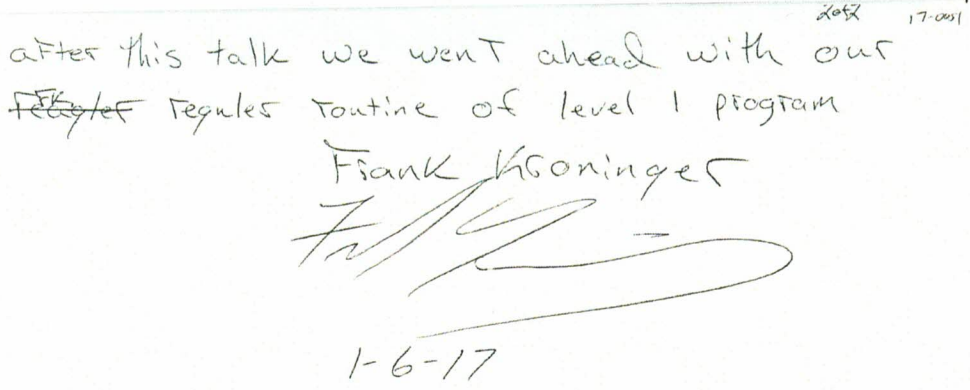 2of2 17-0051
after this talk we went ahead with our
regular routine of level 1 program
Frank Kroninger
1-6-17